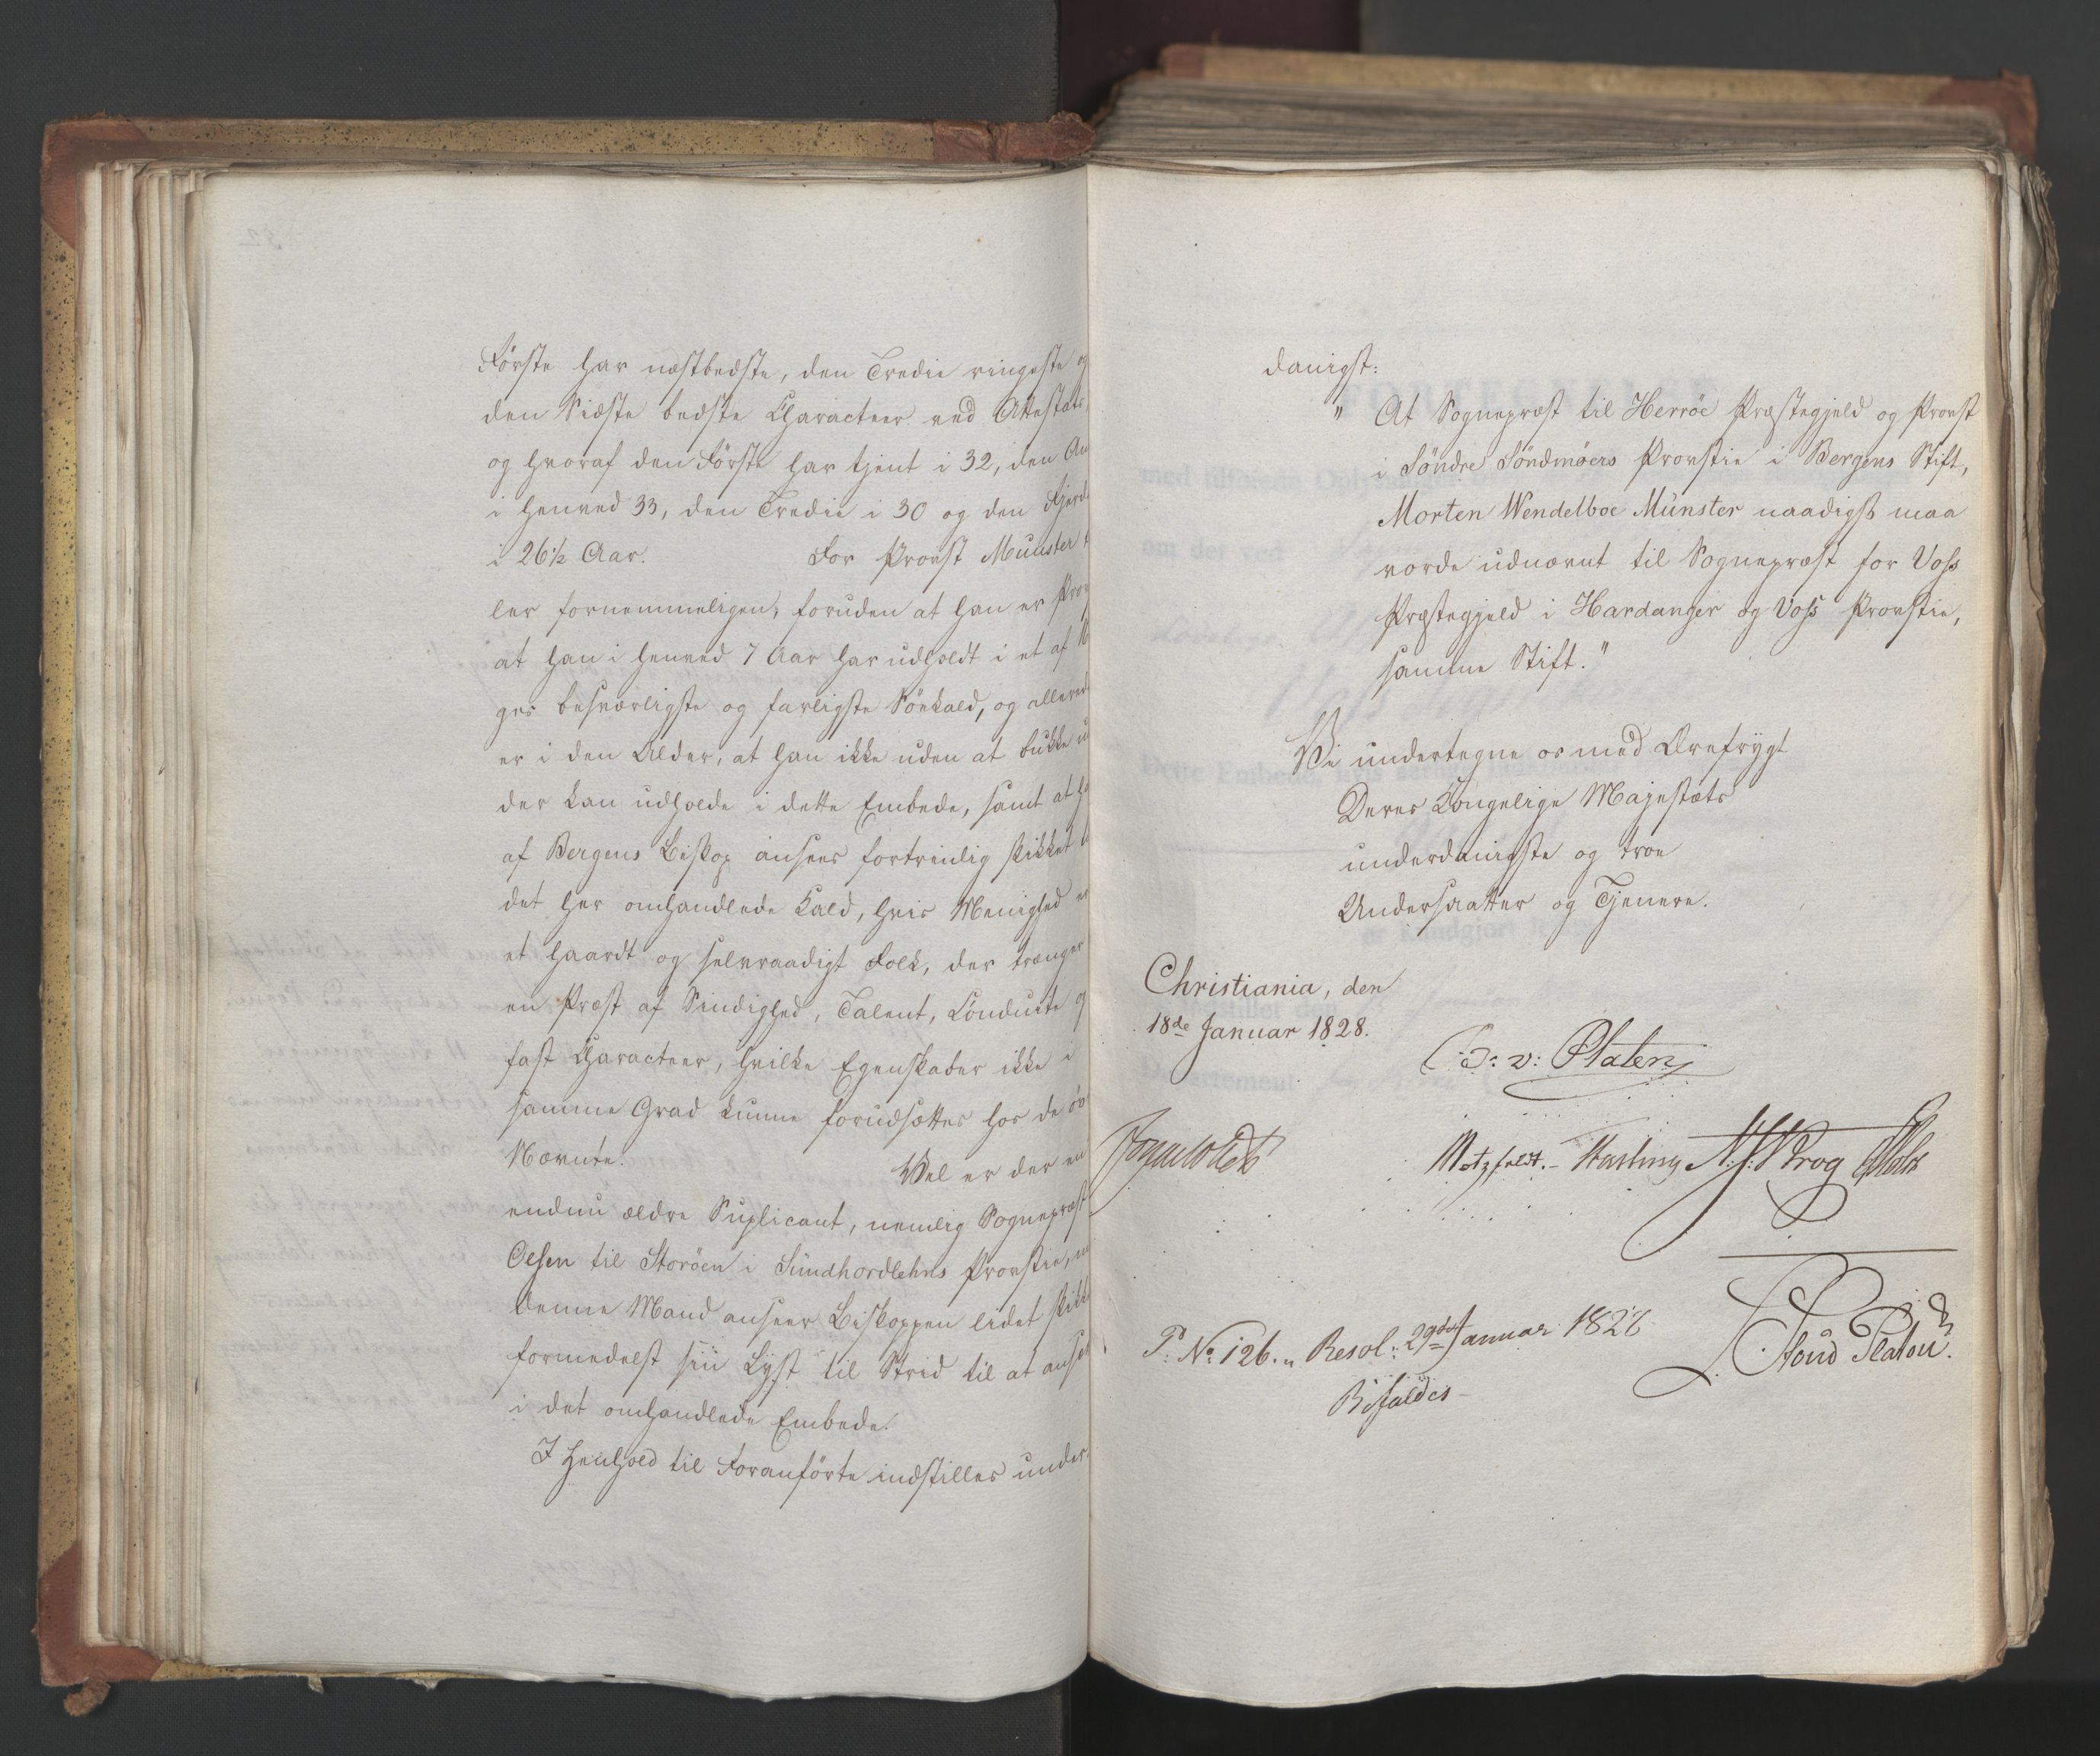 Første har næstbedste, den Tredie ringeste og
den Sidste bedste Characteer ved Attestats,
og hvoraf den Første har tjent i 32, den An
i henved 33, den Tredie i 30 og den Fjerde
i 26½ Aar. For Provst Munster t
ler fornemmeligen, foruden at han er Prov
at han i henved 7 Aar har udholdt i et af N
ges besværligste og farligste Søekald, og allerede
er i den Alder, at han ikke uden at bukke u
der kan udholde i dette Embede, samt at ha
af Bergens Biskop ansees fortrinlig skikket t
det her omhandlede Kald, hvis Menighed er
et haardt og selvraadigt Folk, der trænger
en Præst af Sindighed, Talent, Conduite og
fast Characteer, hvilke Egenskaber ikke i
samme Grad kunne forudsættes hos de øv
Nævnte. Vel er der en
endnu ældre Suplicant, nemlig Sognepræst
Olsen til Storøen i Sundhordlehns Provstie, m
denne Mand anseer Biskoppen lidet skikk
formedelst sin Lyst til Strid til at ansæt
i det omhandlede Embede.
I Henhold til Foranførte indstilles under-
danigst:
" At Sognepræst til Herröe Præstegjeld og Provst
i Söndre Söndmöers Provstie i Bergens Stift,
Morten Wendelboe Münster naadigst maa
vorde udnævnt til Sognepræst for Voss
Præstegjeld i Hardanger og Voss Provstie,
samme Stift."
Vi undertegne os med Ærefrygt
Deres Kongelige Majestæts
underdanigste og troe
Undersaatter og Tjenere.
Christiania, den
18de Januar 1828.
B: v: Platen
Motzfeldt. Hasting Krog
P: No 126. „ Resol: 29de Januar 1828
Bifaldes
Stoud Platou.